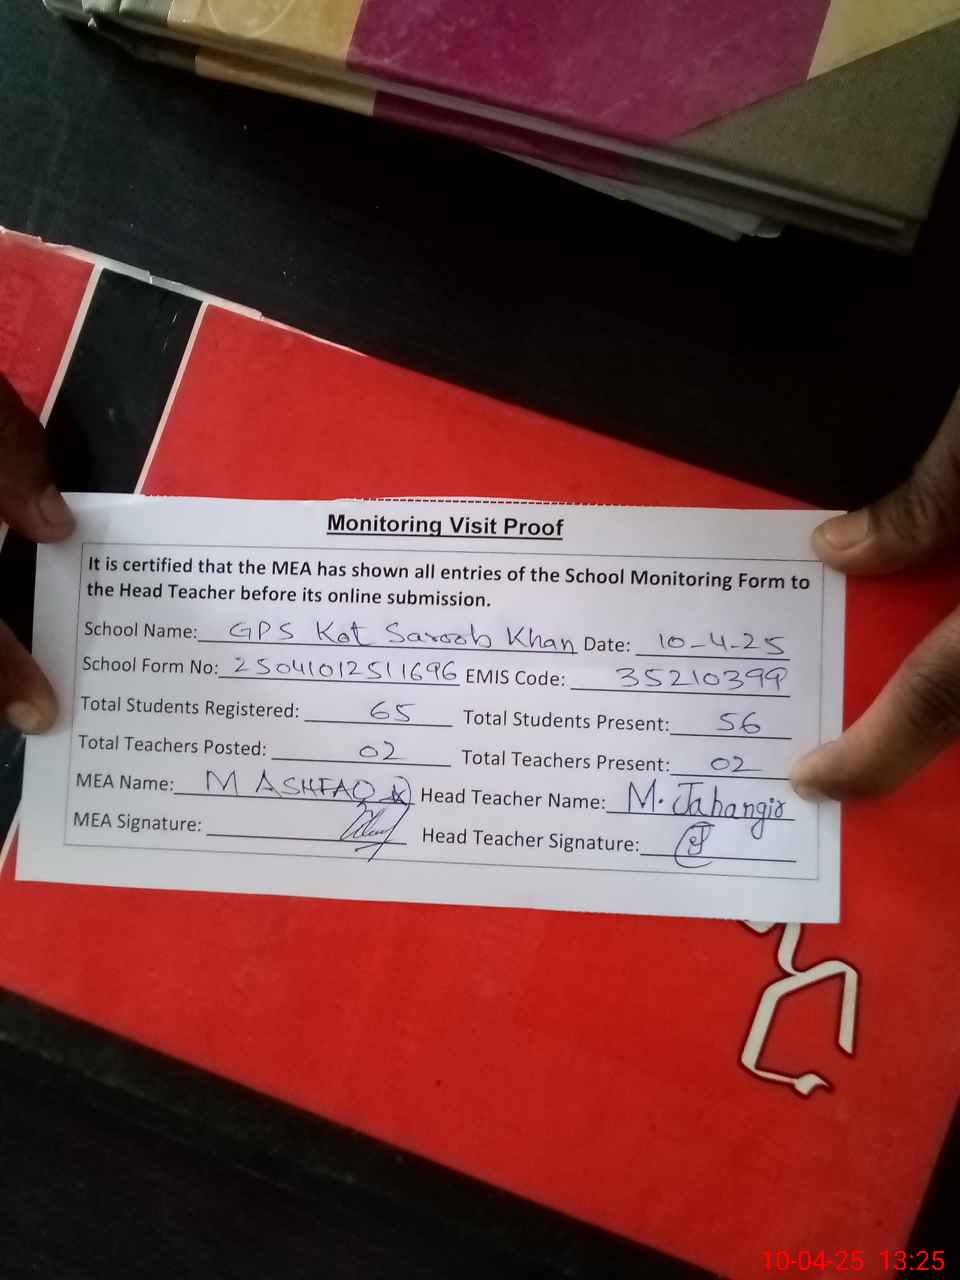 Monitoring Visit Proof
It is certified that the MEA has shown all entries of the School Monitoring Form to
the Head Teacher before its online submission.
School Name: GPS Kot Saroob Khan Date: 10-4-25
School Form No: 25041012511696 EMIS Code: 35210399
Total Students Registered: 65 Total Students Present: 56
Total Teachers Posted: 02 Total Teachers Present: 02
MEA Name: M ASHFAQ Head Teacher Name: M. Jahangir
MEA Signature: Head Teacher Signature:
10-04-25 13:25